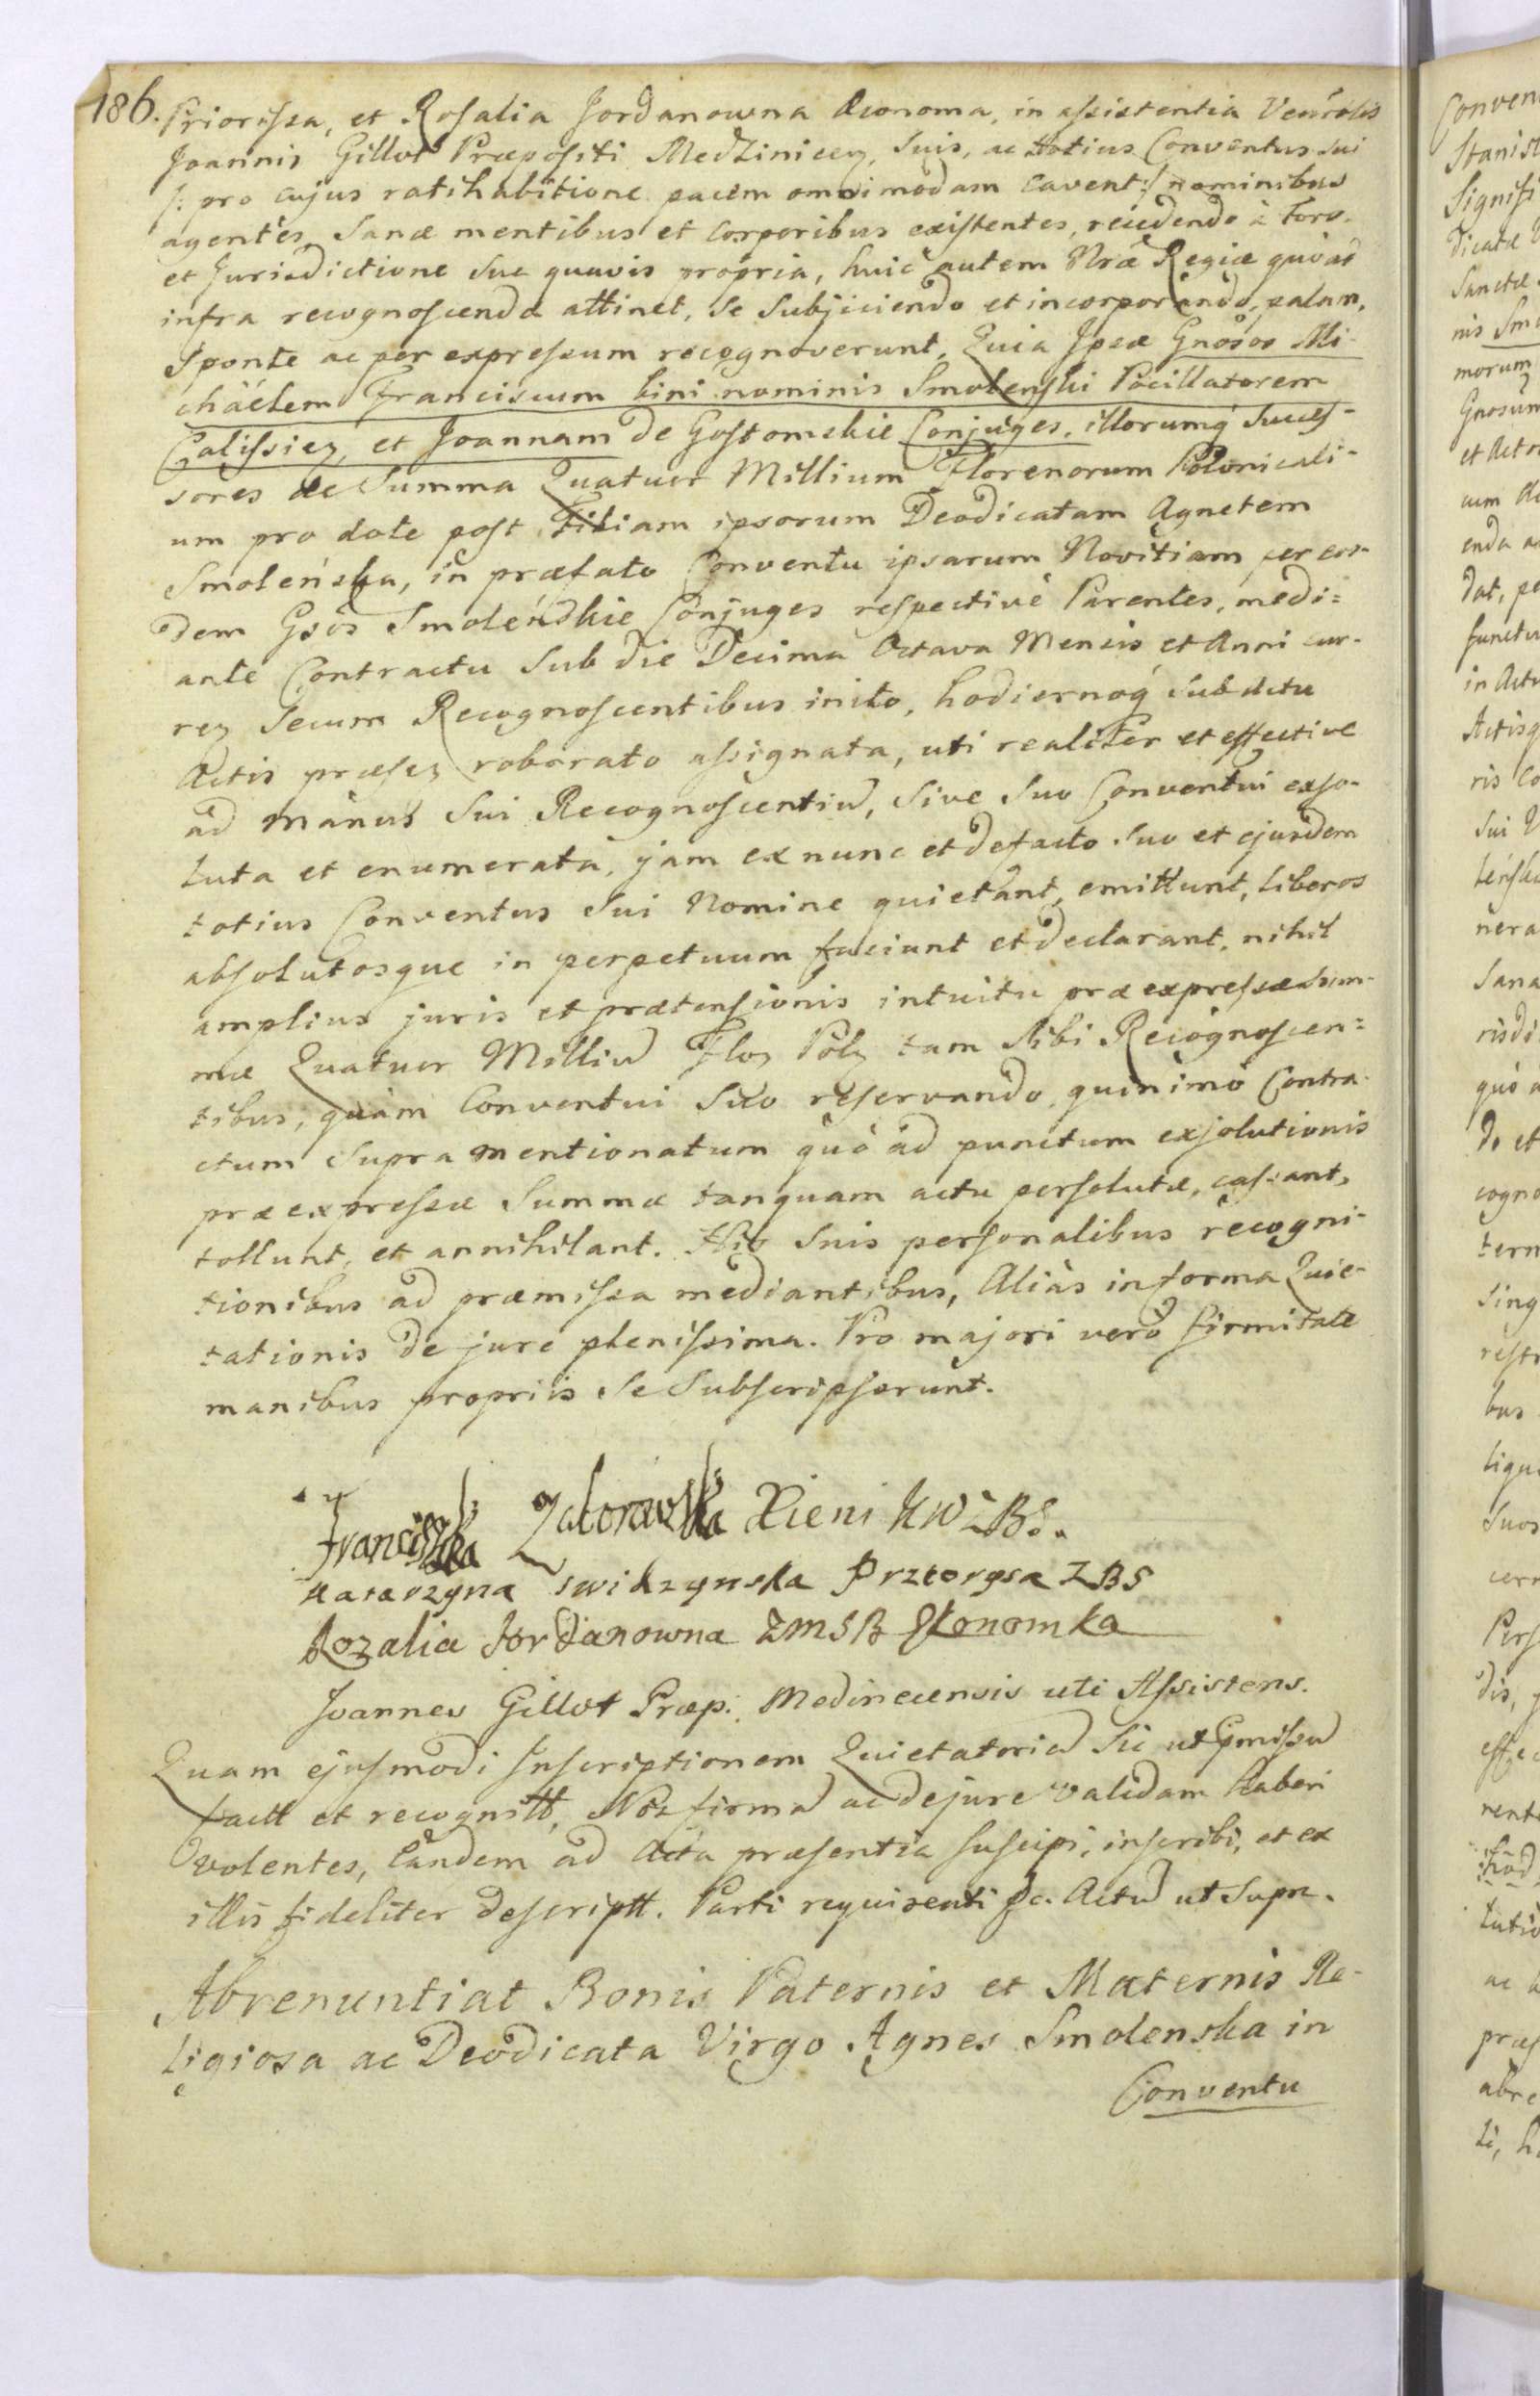 186. Priorissa, et Rosalia Jordanowna Œconoma, in assistentia Venrolis
Joannis Gillot Præpositi Medzinicen, Suis, ac totius Conventus sui
/: pro cujus ratihabitione pacem omnimodam cavent :/ nominibus
agentes, Sanæ mentibus et corporibus existentes, recedendo à foro
et Jurisdictione Sua quavis propria, huic autem Nræ Regiæ quò ad
infra recognoscenda attinet, se Subjiciendo et incorporando, palam,
Sponte ac per expressum recognoverunt, Quia Ipsæ Gnosos Mi-
chäelem Franciscum bini nominis Smolenski Pocillatorem
Calissien, et Joannam de Gostomskie Conjuges, illorumq Succes-
sores de Summa Quatuor Millium Florenorum Polonicali-
um pro dote post Filiam ipsorum Deodicatam Agnetem
Smoleńska, in præfato Conventu ipsarum Novitiam per eos-
dem Gsos Smoleńskie Conjuges respectivè Parentes, medi=
ante Contractu Sub die Decima Octava Mensis et Anni cur-
ren Secum Recognoscentibus inito, hodiernoq Sub Actu
Actis præsen roborato assignata, uti realiter et effective
ad manus Sui Recognoscentiu, Sive Suo Conventui exso-
luta et enumerata, jam ex nunc et de facto Suo et ejusdem
totius Conventus Sui Nomine quietant, emittunt, liberos
absolutosque in perpetuum faciunt et declarant, nihil
amplius juris et prætensionis intuitu præexpressæ Sum-
mæ Quatuor Milliu Flor Pol tam Sibi Recognoscen=
tibus, quàm Conventui Suo reservando, quinimò Contra-
ctum Supra mentionatum quò ad punctum exsolutionis
præexpressæ Summæ tanquam actu persolutæ, cassant,
tollunt, et annihilant. His Suis personalibus recogni-
tionibus ad præmissa mediantibus, Aliàs in forma Quie-
tationis de jure plenissima. Pro majori verò firmitate
manibus propriis Se Subscripserunt.
Franciszka Zaborowska Xieni KWZBS.
Katarzyna Swidzynska Przeorysa ZBS
Rozalia Jordanowna ZMSB Ekonomka
Joannes Gillot Præp: Medinecensis uti Assistens.
Quam ejusmodi Inscriptionem Quietatoria Sic ut pmissu
fact et recognitt, Nos firma ac de jure validam haberi
volentes, Eandem ad Acta præsentia suscipi, inscribi, et ex
illis fideliter descriptt. Parti requirenti &c. Actu ut Supra.
Abrenuntiat Bonis Paternis et Maternis Re-
ligiosa ac Deodicata Virgo Agnes Smolenska in
Conventu